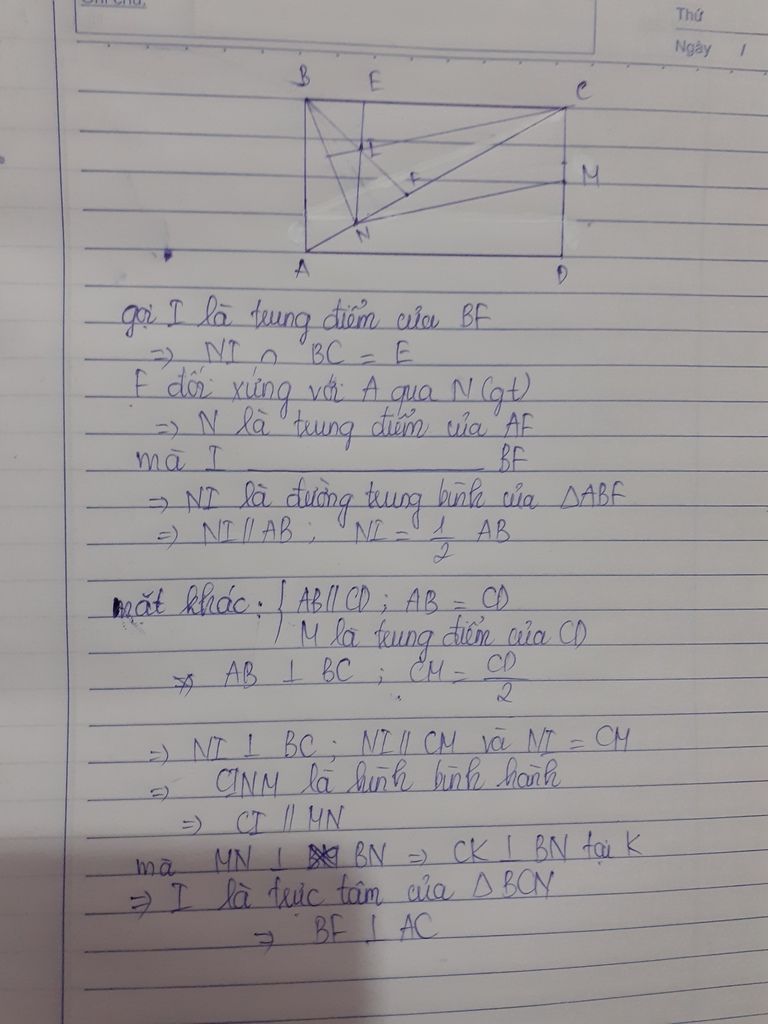 Ghi chú:
Thứ
Ngày /
B E C
I
F
M
N
A D
gọi I là trung điểm của BF
=> NI ∩ BC = E
F đối xứng với A qua N (gt)
=> N là trung điểm của AF
mà I ____________ BF
=> NI là đường trung bình của △ABF
=> NI // AB ; NI = 1/2 AB
mặt khác : { AB // CD ; AB = CD
M là trung điểm của CD
=> AB ⊥ BC ; CM = CD/2
=> NI ⊥ BC ; NI // CM và NI = CM
=> CINM là hình bình hành
=> CI // MN
mà MN ⊥ BN => CK ⊥ BN tại K
=> I là trực tâm của △BCN
=> BF ⊥ AC